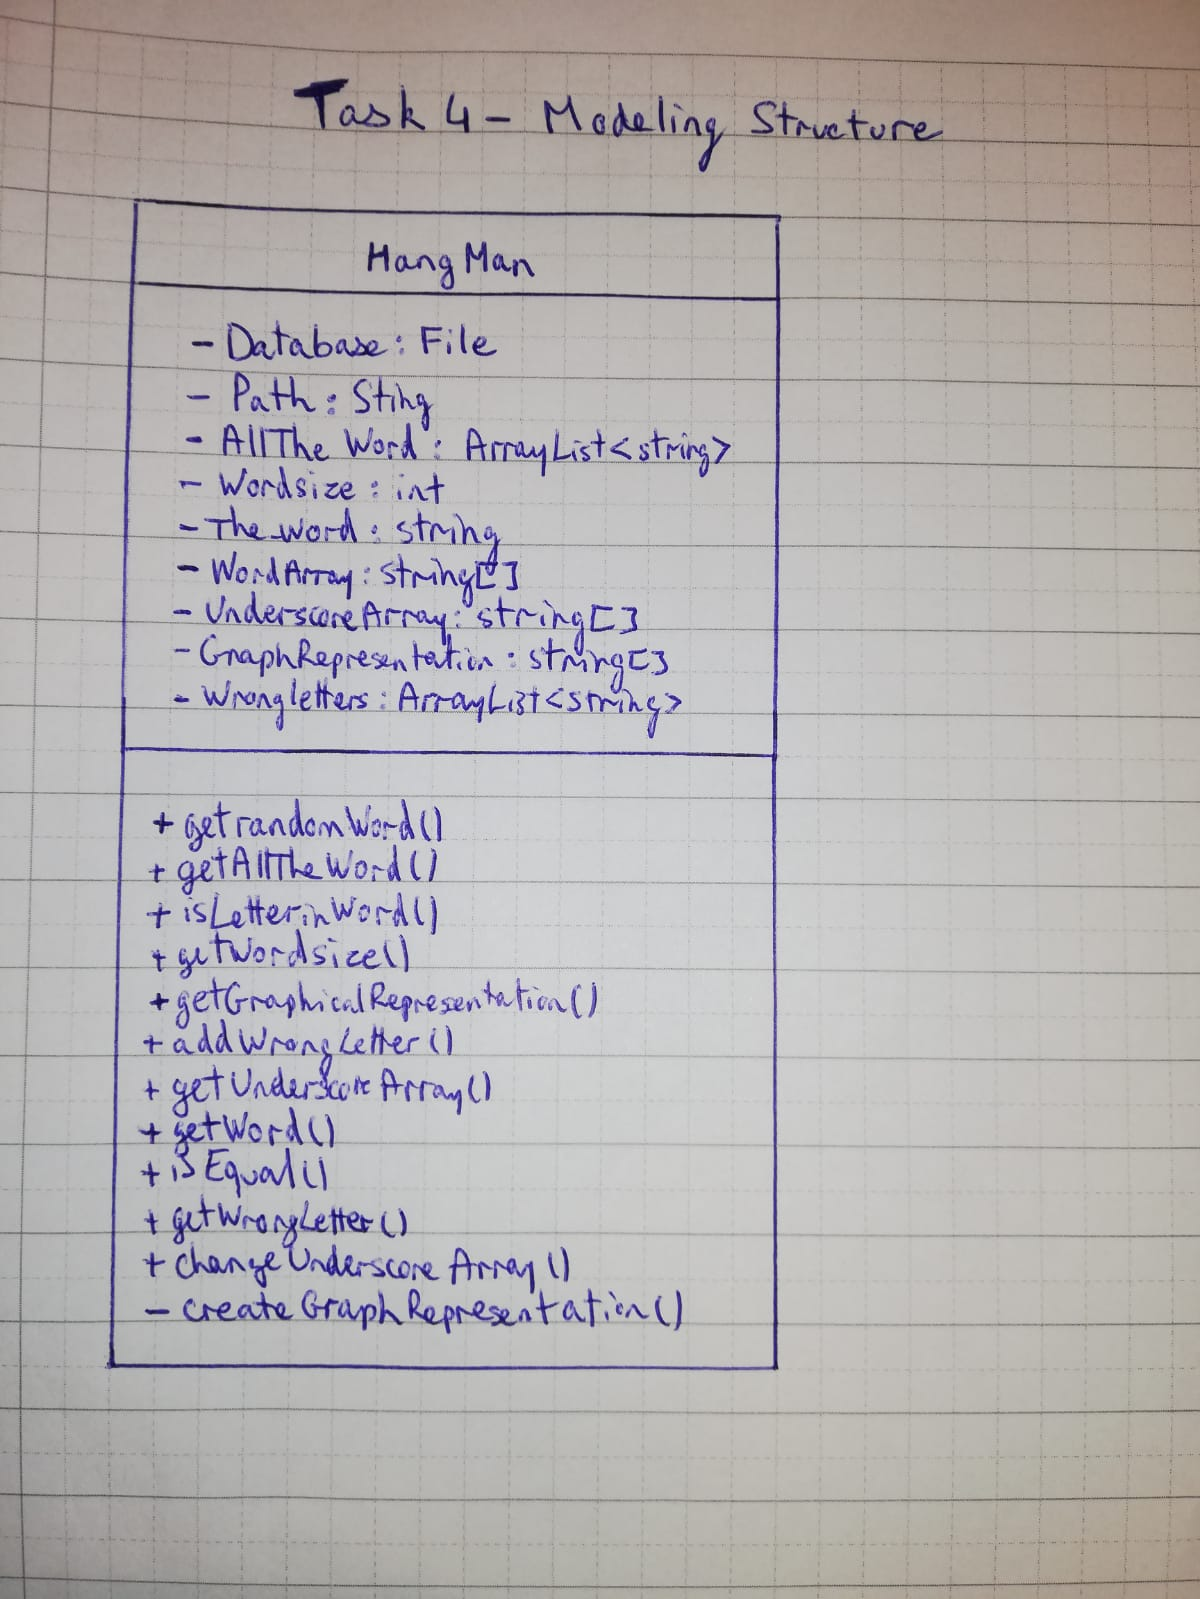 Task 4 - Modeling Structure
HangMan
- Database : File
- Path : Sting
- AllThe Word : ArrayList<string>
- Wordsize : int
- The_word : string
- WordArray : string[]
- UnderscoreArray : string[]
- GraphRepresentation : string[]
- Wrongletters : ArrayList<string>
+ getrandomWord()
+ getAllTheWord()
+ isLetterinWord()
+ getWordsize()
+ getGraphicalRepresentation()
+ addWrongLetter()
+ getUnderscoreArray()
+ getWord()
+ isEqual()
+ getWrongLetter()
+ changeUnderscoreArray()
- createGraphRepresentation()